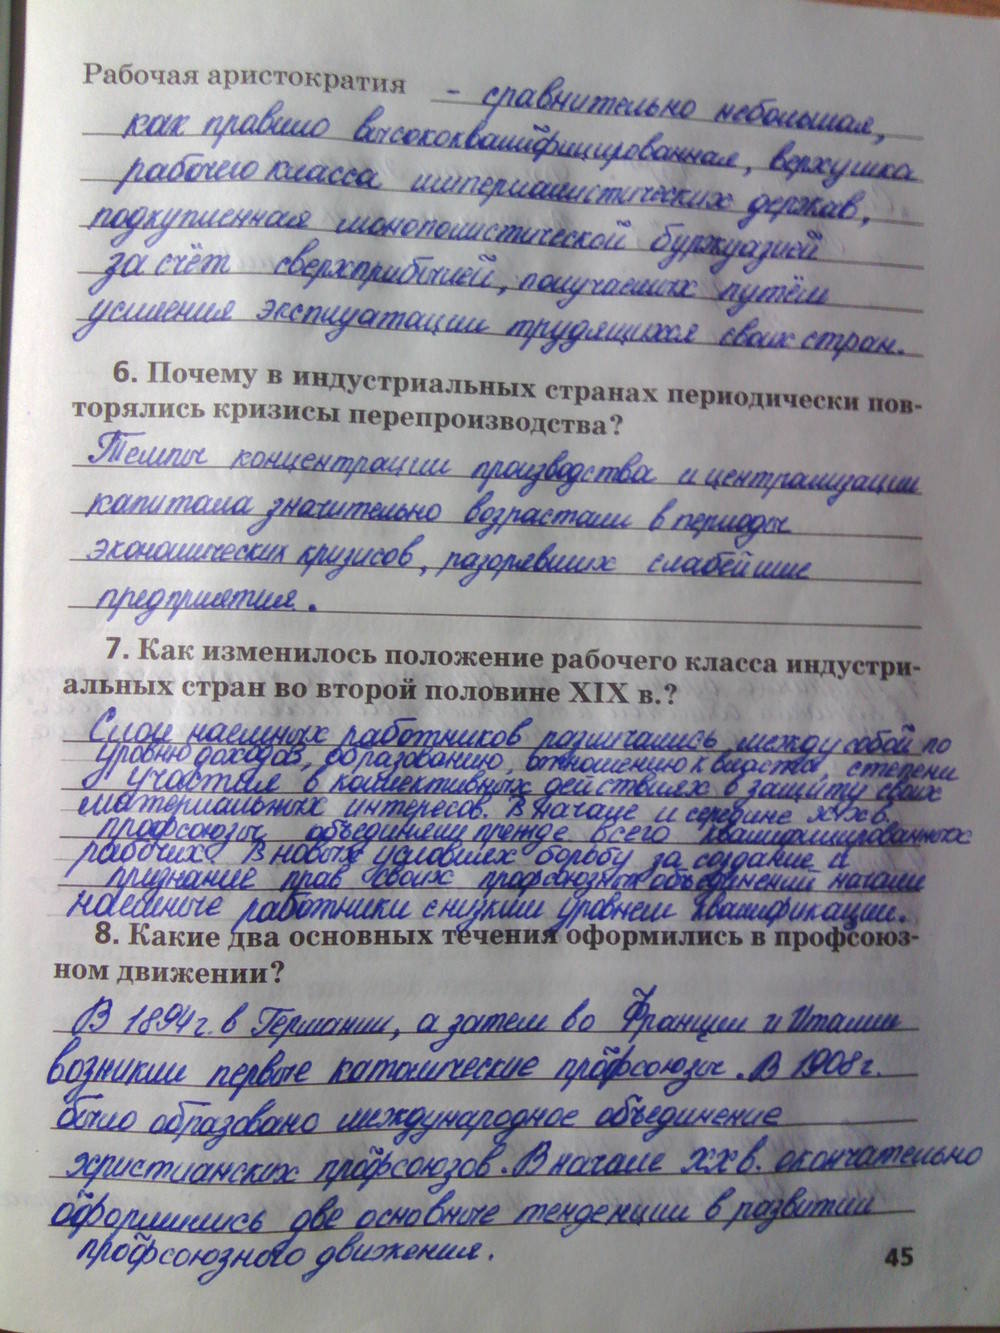 Рабочая аристократия - сравнительно небольшая,
как правило высококвалифицированная, верхушка
рабочего класса империалистических держав,
подкупленная монополистической буржуазией
за счёт сверхприбылей, получаемых путём
усиления эксплуатации трудящихся своих стран.
6. Почему в индустриальных странах периодически пов-
торялись кризисы перепроизводства?
Темпы концентрации производства и централизации
капитала значительно возрастали в периоды
экономических кризисов, разорявших слабейшие
предприятия.
7. Как изменилось положение рабочего класса индустри-
альных стран во второй половине XIX в.?
Слои наемных работников различались между собой по
уровню доходов, образованию, отношению к власти, степени
участия в коллективных действиях в защиту своих
материальных интересов. В начале и середине XIX в.
профсоюзы объединяли прежде всего квалифицированных
рабочих. В новых условиях борьбу за создание и
признание прав своих профсоюзных объединений начали
наемные работники с низким уровнем квалификации.
8. Какие два основных течения оформились в профсоюз-
ном движении?
В 1894 г. в Германии, а затем во Франции и Италии
возникли первые католические профсоюзы. В 1908 г.
было образовано международное объединение
христианских профсоюзов. В начале XX в. окончательно
оформились две основные тенденции в развитии
профсоюзного движения.
45